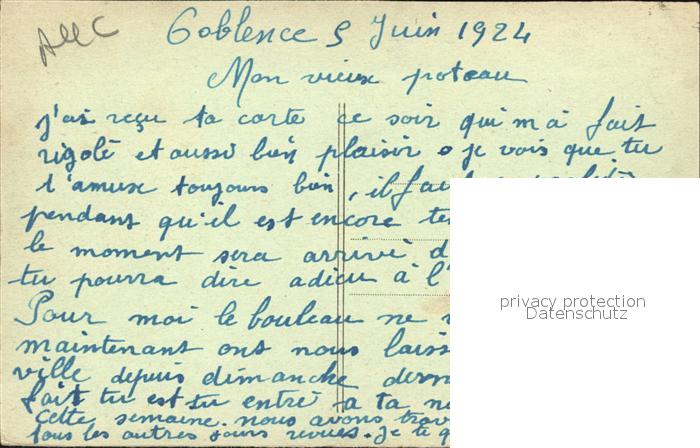 Coblence 5 Juin 1924
Mon vieux poteau
j'ai reçu ta carte ce soir qui m'a fait
rigolé et aussi bien plaisir je vois que tu
t'amuse toujours bien, il
pendant qu'il est encore
le moment sera arrivé
tu pourra dire adieu à
Pour moi le bouleau ne
maintenant ont nous
ville depuis dimanche
fait tu est tu entré a ta
Cette semaine. nous avons
tous les autres jours revues. je te
privacy protection
Datenschutz